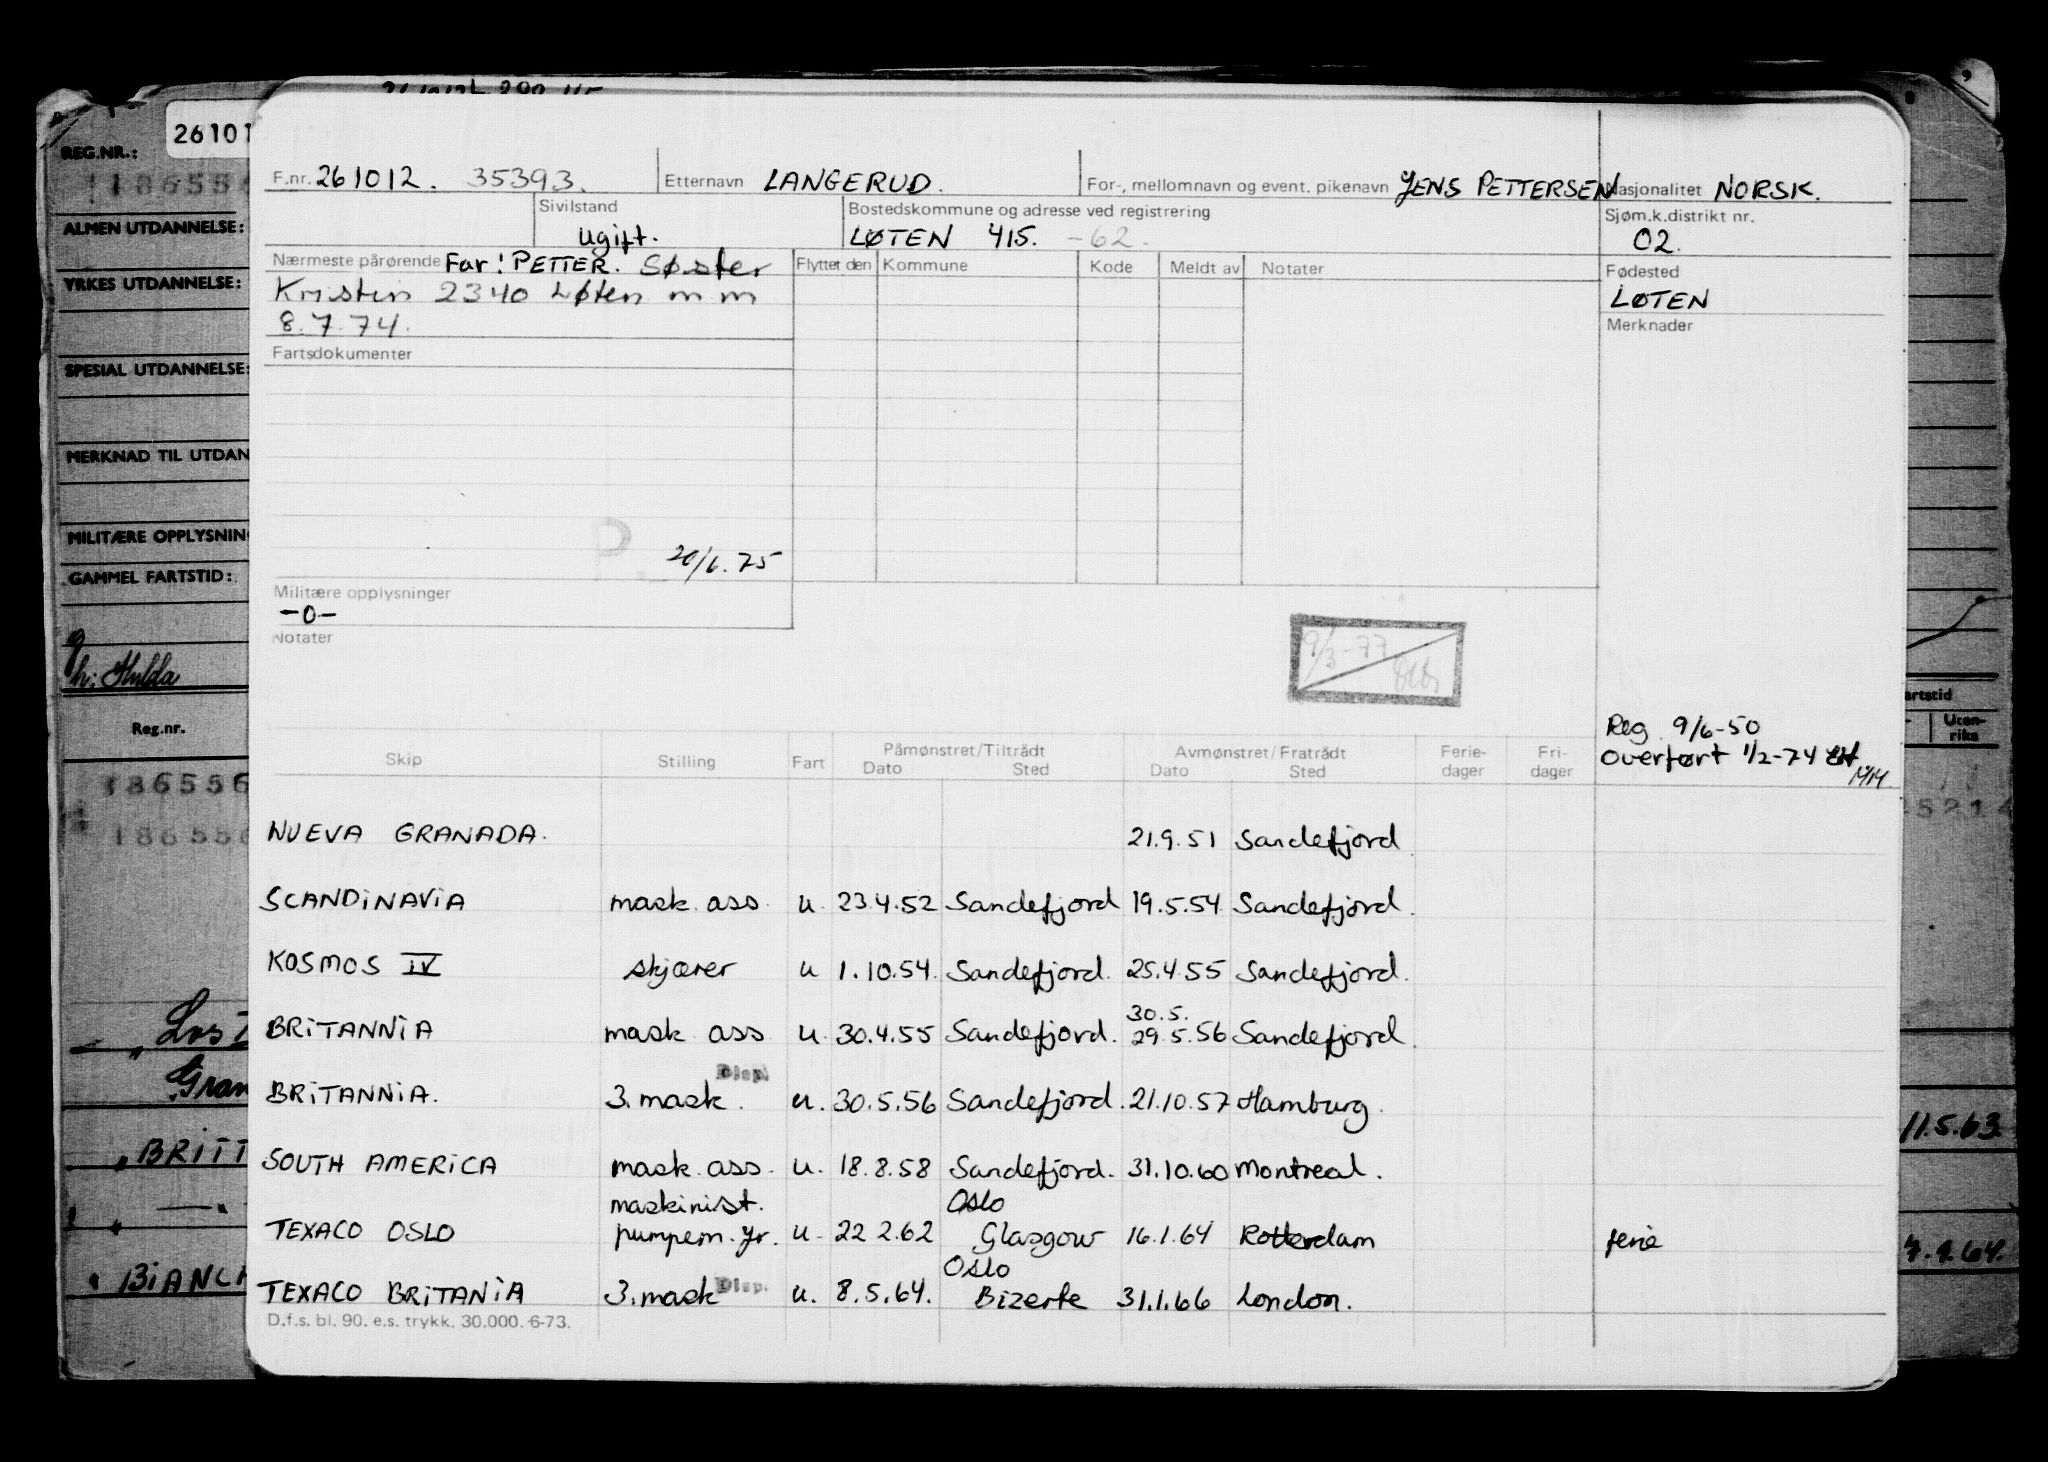 REG.NR.:
26101
ALMEN UTDANNELSE:
YRKES UTDANNELSE:
SPESIAL UTDANNELSE:
MERKNAD TIL UTDAN
MILITÆRE OPPLYSNIN
GAMMEL FARTSTID:
h: Hulda
Reg.nr.
186556
186556
Gran
BRITT
BIANCA
F.nr. 261012. 35393. Etternavn LANGERUD. For-, mellomnavn og event. pikenavn JENS PETTERSEN Nasjonalitet NORSK.
Sivilstand Ugift. Bostedskommune og adresse ved registrering LØTEN 415. -62. Sjøm.k.distrikt nr. 02.
Nærmeste pårørende Far: PETTER. Søster
Kristin 2340 Løten m m
8.7.74.
Flyttet den Kommune Kode Meldt av Notater
Fødested
LØTEN
Merknader
Fartsdokumenter
20/6.75
Militære opplysninger
-0-
Notater
9/3-77
Reg. 9/6-50
Overført 1/2-74
Skip Stilling Fart Påmønstret/Tiltrådt Dato Sted Avmønstret/Fratrådt Dato Sted Ferie-dager Fri-dager
NUEVA GRANADA. 21.9.51 Sandefjord
SCANDINAVIA mask. ass. u. 23.4.52 Sandefjord 19.5.54 Sandefjord.
KOSMOS IV skjærer u 1.10.54. Sandefjord. 25.4.55 Sandefjord.
30.5.
BRITANNIA mask ass u. 30.4.55 Sandefjord. 29.5.56 Sandefjord.
BRITANNIA. 3. mask. Disp. u. 30.5.56 Sandefjord. 21.10.57 Hamburg.
SOUTH AMERICA mask. ass. u. 18.8.58 Sandefjord. 31.10.60 Montreal.
maskinist. Oslo
TEXACO OSLO pumpem. yr. u- 22 2.62 Glasgow 16.1.64 Rotterdam ferie
Oslo
TEXACO BRITANIA 3. mask Disp. u. 8.5.64. Bizerte 31.1.66 London.
D.f.s. bl. 90. e.s. trykk. 30.000. 6-73.
artstid
Uten-
riks
11.5.63